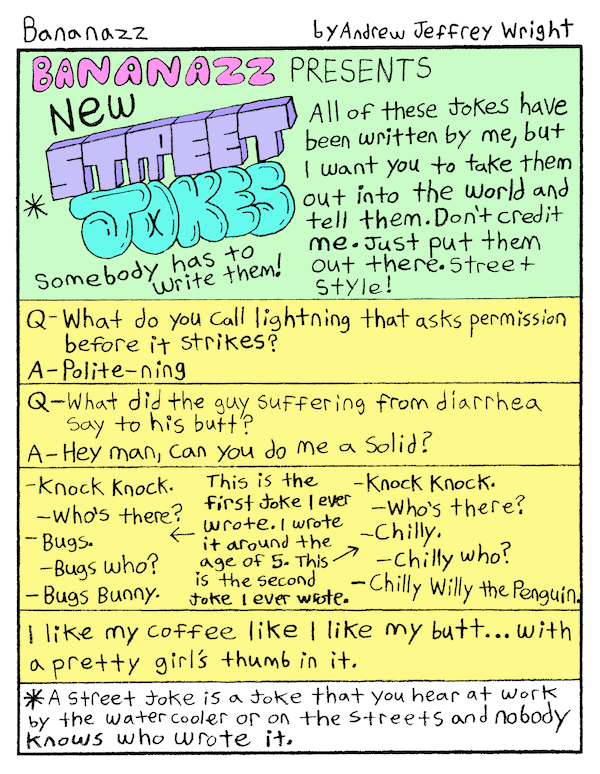 Bananazz by Andrew Jeffrey Wright
BANANAZZ PRESENTS
New
STREET
* JOKES
Somebody has to
write them!
All of these jokes have
been written by me, but
I want you to take them
out into the world and
tell them. Don't credit
me. Just put them
out there. Street
style!
Q-What do you call lightning that asks permission
before it strikes?
A-Polite-ning
Q-What did the guy suffering from diarrhea
say to his butt?
A-Hey man, can you do me a solid?
-Knock Knock.
-Who's there?
-Bugs.
-Bugs who?
-Bugs Bunny.
This is the
first joke I ever
wrote. I wrote
it around the
age of 5. This
is the second
joke I ever wrote.
-Knock Knock.
-Who's there?
-Chilly.
-Chilly who?
-Chilly Willy the Penguin.
I like my coffee like I like my butt... with
a pretty girl's thumb in it.
*A street joke is a joke that you hear at work
by the water cooler or on the streets and nobody
knows who wrote it.